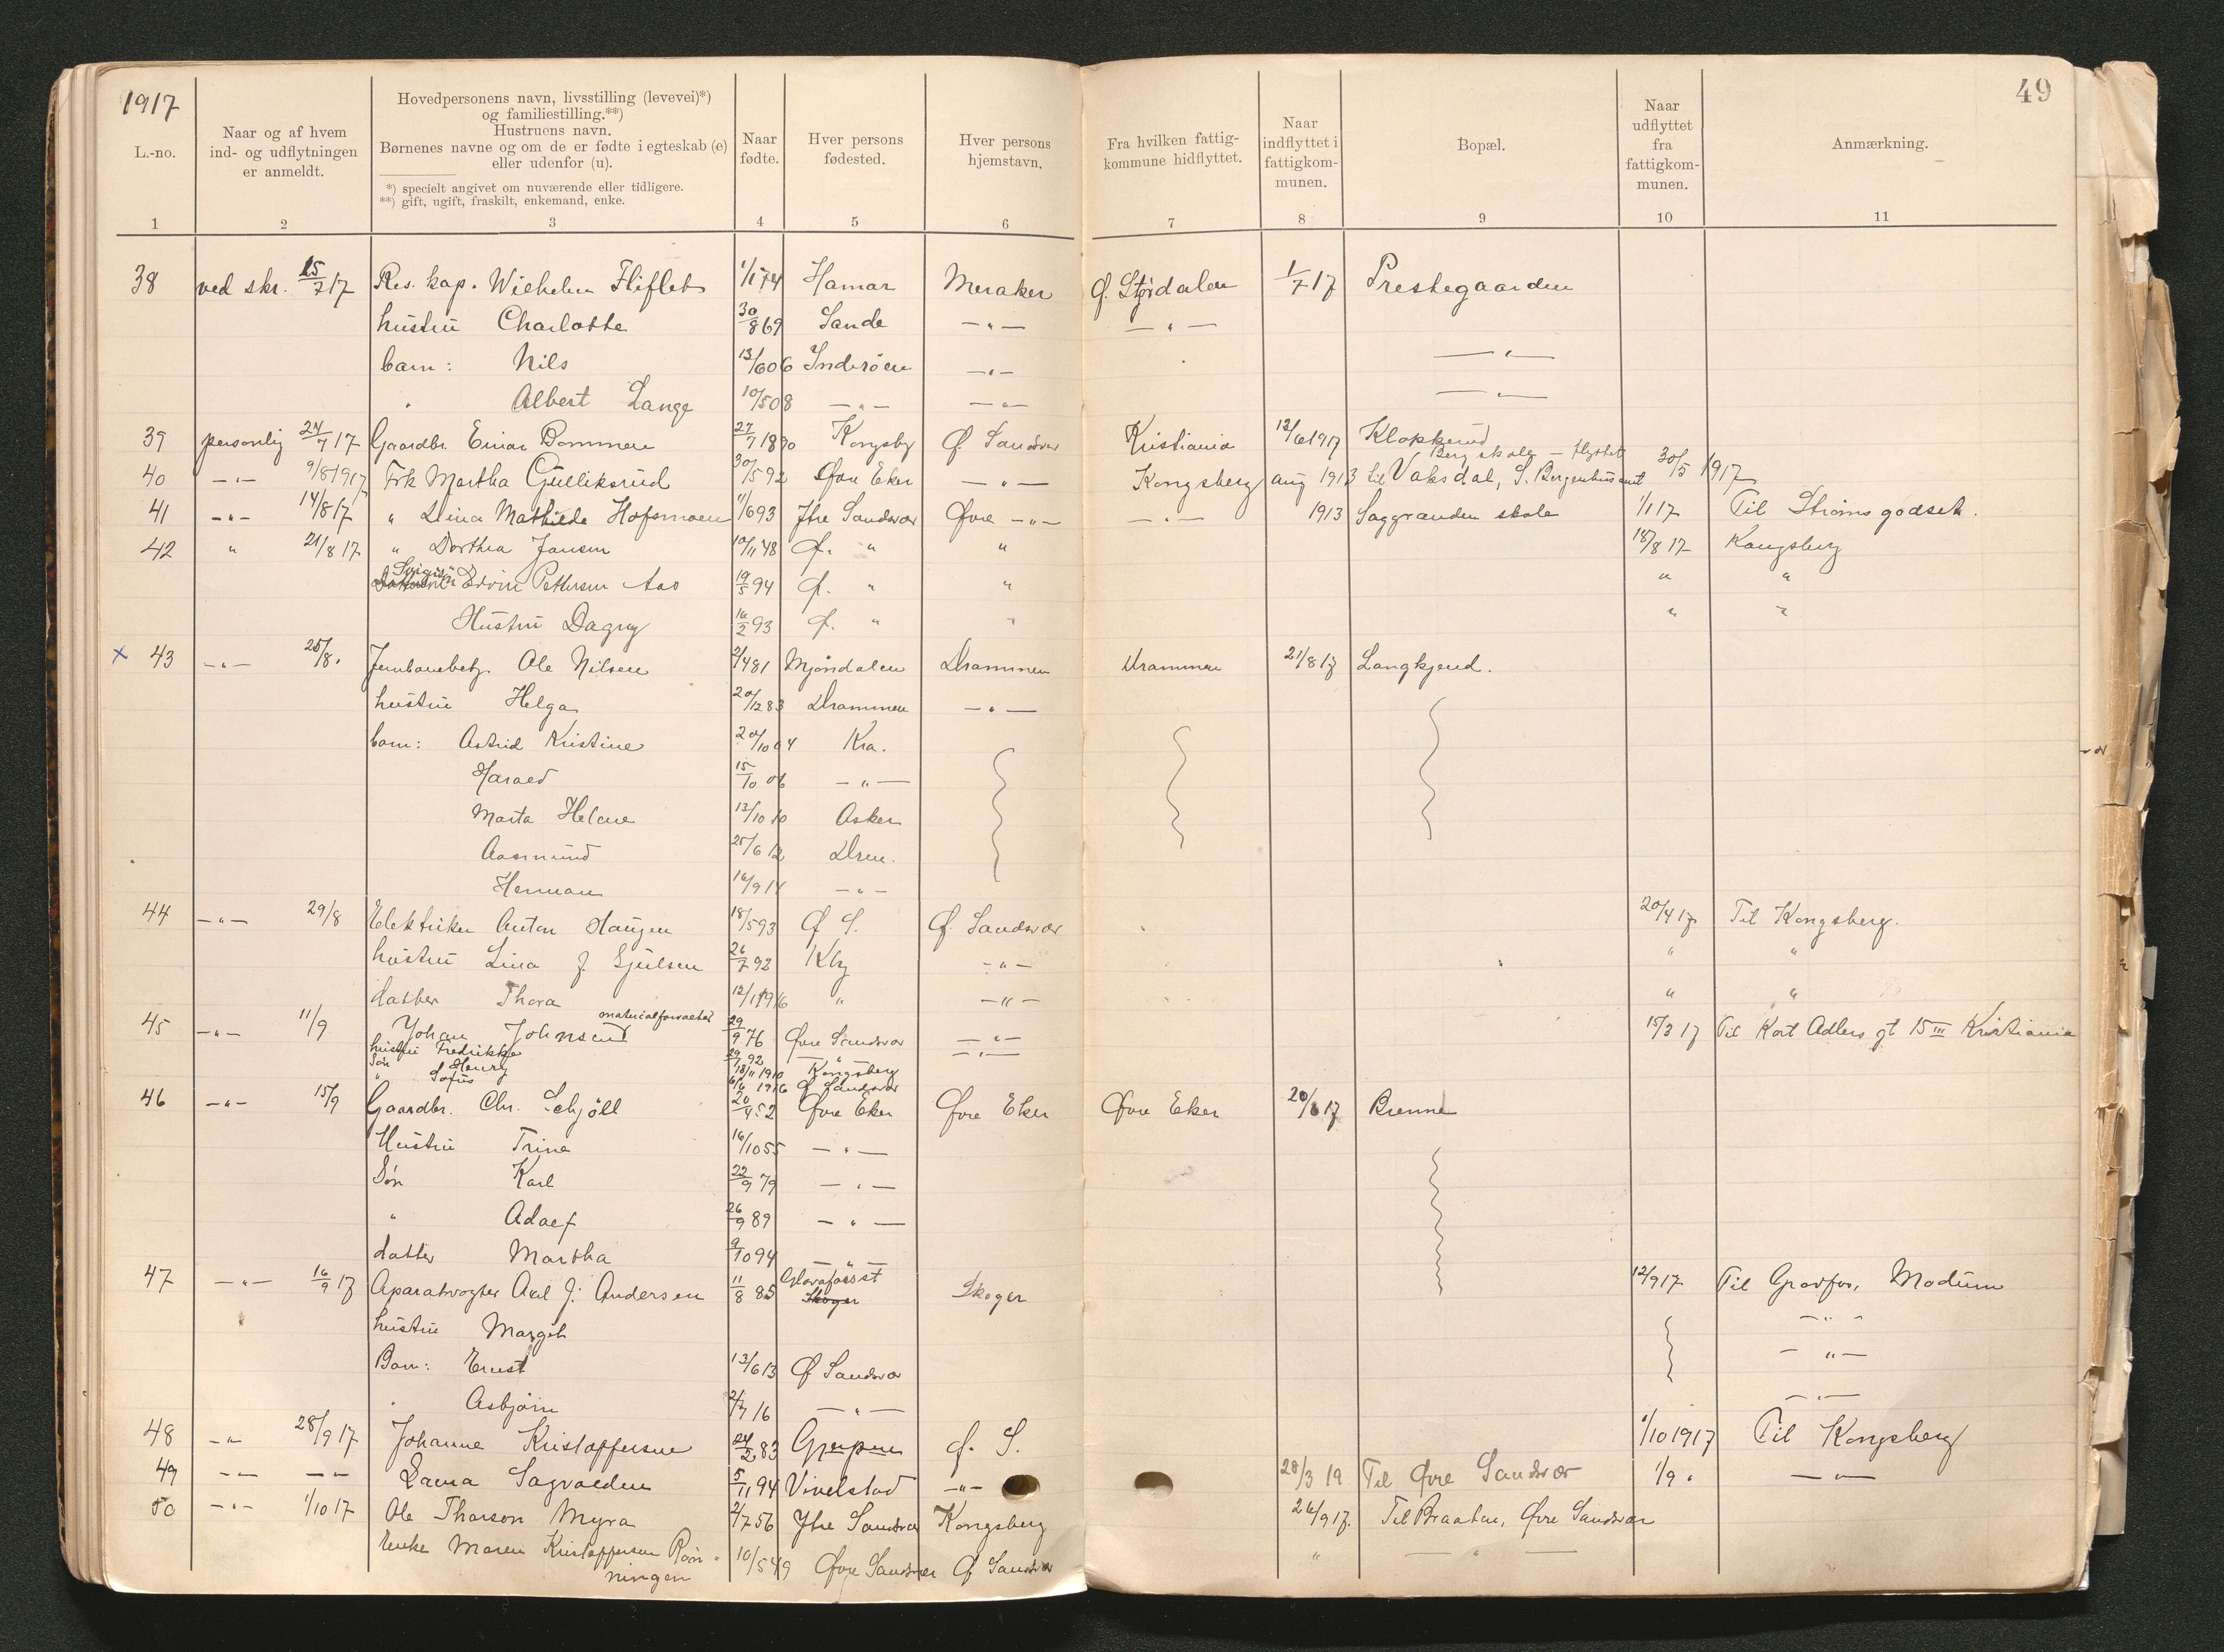 1917
49
L.-no.
Naar og af hvem
ind- og udflytningen
er anmeldt.
Hovedpersonens navn, livsstilling (levevei)*)
og familiestilling.**)
Hustruens navn.
Børnenes navne og om de er fødte i egteskab (e)
eller udenfor (u).
*) specielt angivet om nuværende eller tidligere.
**) gift, ugift, fraskilt, enkemand, enke.
Naar
fødte.
Hver persons
fødested.
Hver persons
hjemstavn.
Fra hvilken fattig-
kommune hidflyttet.
Naar
indflyttet i
fattigkom-
munen.
Bopæl.
Naar
udflyttet
fra
fattigkom-
munen.
Anmærkning.
1 2 3 4 5 6 7 8 9 10 11
38 ved skr. 15/7 17 Res. kap. Wilhelm Fliflet 1/1 74 Hamar Meraker Ø. Stjørdalen 1/7 17 Prestegaarden
hustru Charlotte 30/8 69 Sande —"— —"—
barn: Nils 13/6 06 Inderøen —"— —"—
" Albert Lange 10/5 08 —"— —"— —"—
39 personlig 24/7 17 Gaardbr. Einar Dommen 27/7 1890 Kongsbg Ø. Sandsvær Kristiania 12/6 1917 Klokkerud
Bergskole — flyttet
40 —"— 9/8 1917 Frk Martha Gulliksrud 30/5 92 Øvre Eker —"— Kongsberg aug 1913 til Vaksdal, S. Bergenhus amt 30/5 1917
41 —"— 14/8 17 " Dina Mathilde Hofsmoen 11/6 93 Ytre Sandsvær Øvre —"— —"— 1913 Saggrenden skole 1/1 17 Til Strømsgodset.
42 " 21/8 17 " Dorthea Jansen 10/11 48 Ø. " " 18/8 17 Kongsberg
Edvin Pettersen Aas 19/5 94 Ø. " " " "
Hustru Dagny 16/2 93 Ø. " " " "
x 43 —"— 25/8. Jernbanebetj. Ole Nilsen 2/4 81 Mjøndalen Drammen Drammen 21/8 17 Langkjend.
hustru Helga 20/12 83 Drammen —"—
barn: Astrid Kristine 20/10 04 Kra.
Harald 15/10 06 —"—
Marta Helene 13/10 10 Asker
Aasmund 25/6 12 Drm.
Herman 16/9 14 —"—
44 —"— 29/8 Elektriker Anton Haugen 18/5 93 Ø S. Ø. Sandsvær 20/4 17 Til Kongsberg.
hustru Lina f. Ejulsen 26/7 92 Kbg —"— " "
datter Thora 12/1 1916 " —"— " "
materialforvalter
45 —"— 11/9 Johan Johnsen 29/9 76 Øvre Sandsvær —"— 15/3 17 Til Kort Adlers gt 15 III Kristiania
hustru Fredrikke 29/7 92 —"— —"—
Søn Henry 18/11 1910 Kongsberg
" Sofus 6/6 1916 Ø Sandsvær
46 —"— 15/9 Gaardbr. Chr. Schjøll 20/4 52 Øvre Eker Øvre Eker Øvre Eker 20/6 17 Brenna
Hustru Trine 16/10 55 —"—
Søn Karl 22/9 79 —"—
" Adolf 26/9 89 —"—
datter Martha 9/10 94 —"—
47 —"— 16/9 17 Aparatvogter Axl J. Andersen 11/8 85 Skoger Skoger 12/9 17 Til Gravfos, Modum
hustru Margit —"—
Barn: Ernst 13/6 13 Ø Sandsvær —"—
" Asbjørn 2/7 16 —"— —"—
48 —"— 28/9 17 Johanne Kristoffersen 24/2 83 Gjerpen Ø. S. 1/10 1917 Til Kongsberg
49 —"— —"— Sagvolden 5/11 94 Vivelstad —"— 20/3 19 Til Øvre Sandsvær 1/9. —"—
50 —"— 1/10 17 Ole Thorson Myra 2/7 56 Ytre Sandsvær Kongsberg 26/9 17. Til Braaten, Øvre Sandsvær
Enke Maren Kristoffersen Røn- 10/5 49 Øvre Sandsvær Ø Sandsvær " —"—
ningen